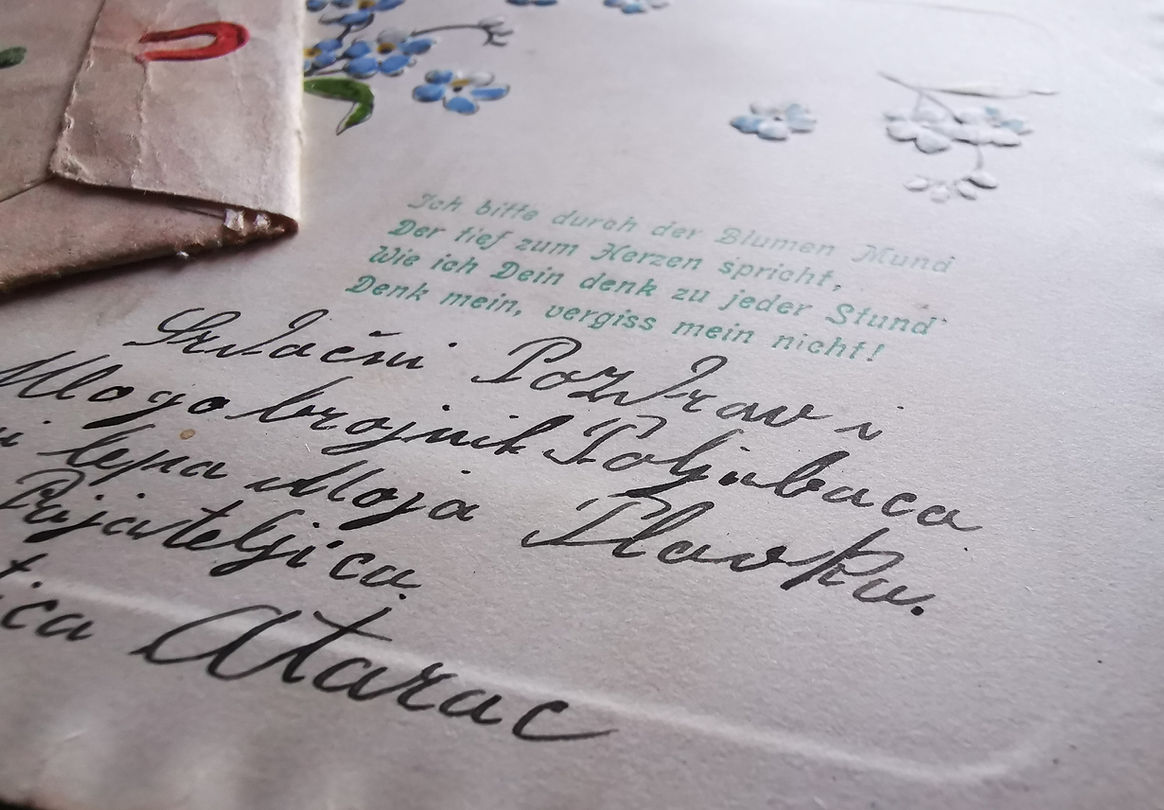 Ich bitte durch der Blumen Mund
Der tief zum Herzen spricht,
Wie ich Dein denk zu jeder Stund
Denk mein, vergiss mein nicht!
Srdačni Pozdrav i
Mlogo brojnih Poljubaca
lepa Moja Plavka.
Prijateljica
Atarac